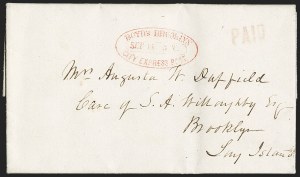 BOYD'S BROOKLYN
CITY EXPRESS POST
PAID
Mrs Augusta W Duffield
Care of S. A. Willoughby Esq
Brooklyn
Long Island